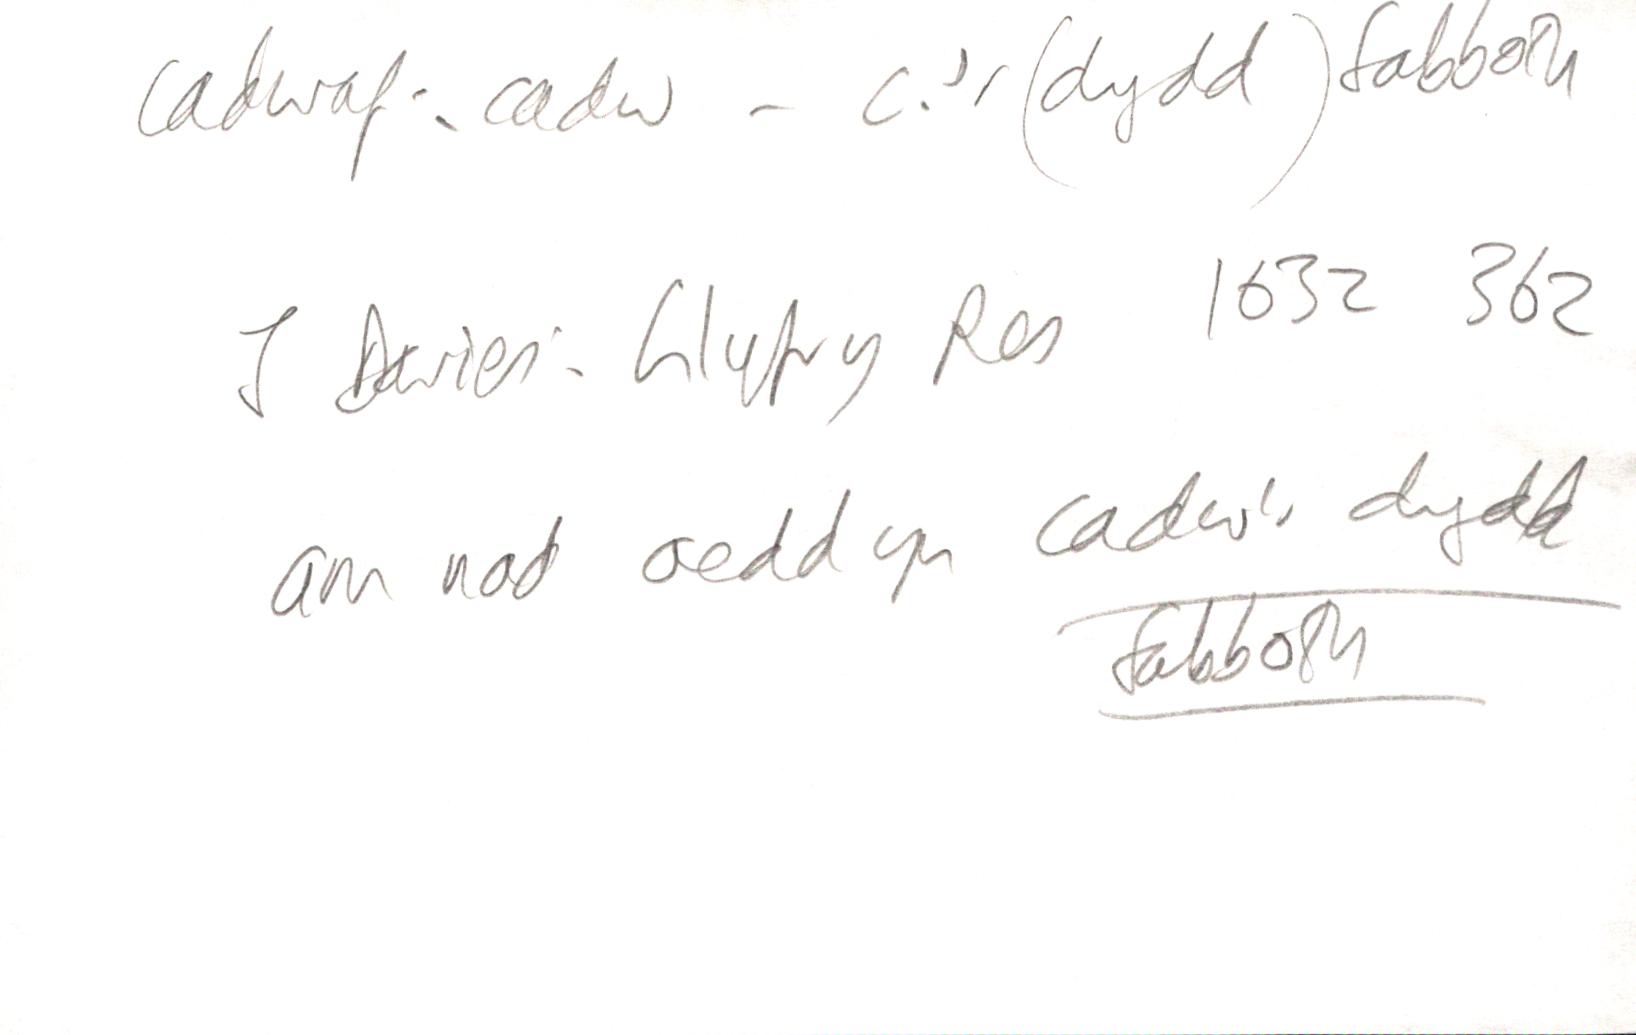 cadwaf: cadw – c.'r (dydd) Sabboth
J Davies: Llyfr y Res 1632 362
am nad oedd yn cadw'r dydd
Sabboth